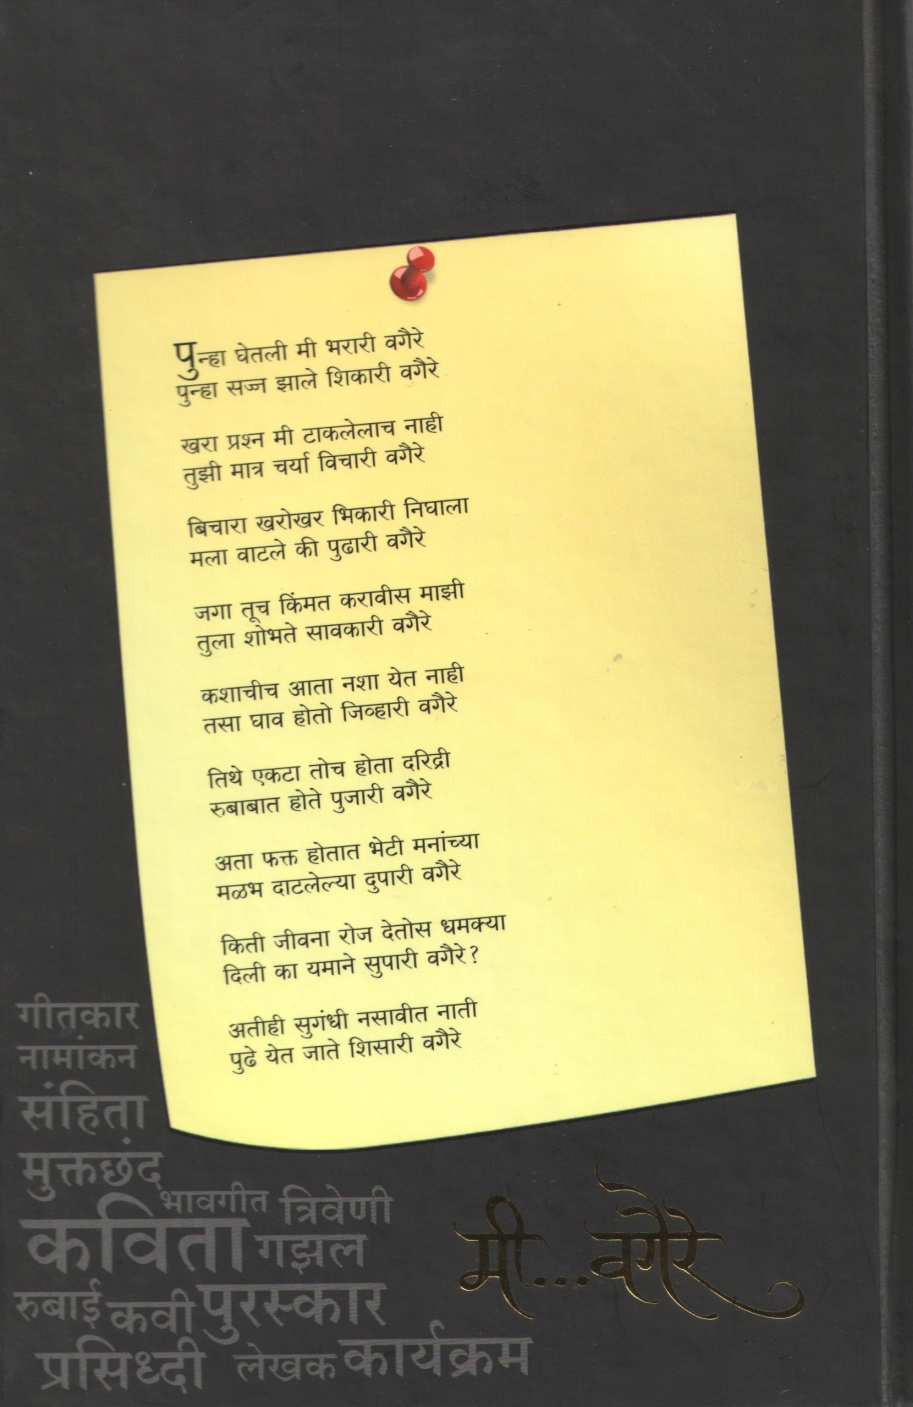 पुन्हा घेतली मी भरारी वगैरे
पुन्हा सज्ज झाले शिकारी वगैरे
खरा प्रश्न मी टाकलेलाच नाही
तुझी मात्र चर्या विचारी वगैरे
बिचारा खरोखर भिकारी निघाला
मला वाटले की पुढारी वगैरे
जगा तूच किंमत करावीस माझी
तुला शोभते सावकारी वगैरे
कशाचीच आता नशा येत नाही
तसा घाव होतो जिव्हारी वगैरे
तिथे एकटा तोच होता दरिद्री
रुबाबात होते पुजारी वगैरे
अता फक्त होतात भेटी मनांच्या
मळभ दाटलेल्या दुपारी वगैरे
किती जीवना रोज देतोस धमक्या
दिली का यमाने सुपारी वगैरे?
अतीही सुगंधी नसावीत नाती
पुढे येत जाते शिसारी वगैरे
गीतकार
नामांकन
संहिता
मुक्तछंद
भावगीत त्रिवेणी
कविता गझल
रुबाई कवी पुरस्कार
प्रसिध्दी लेखक कार्यक्रम
मी...वगैरे